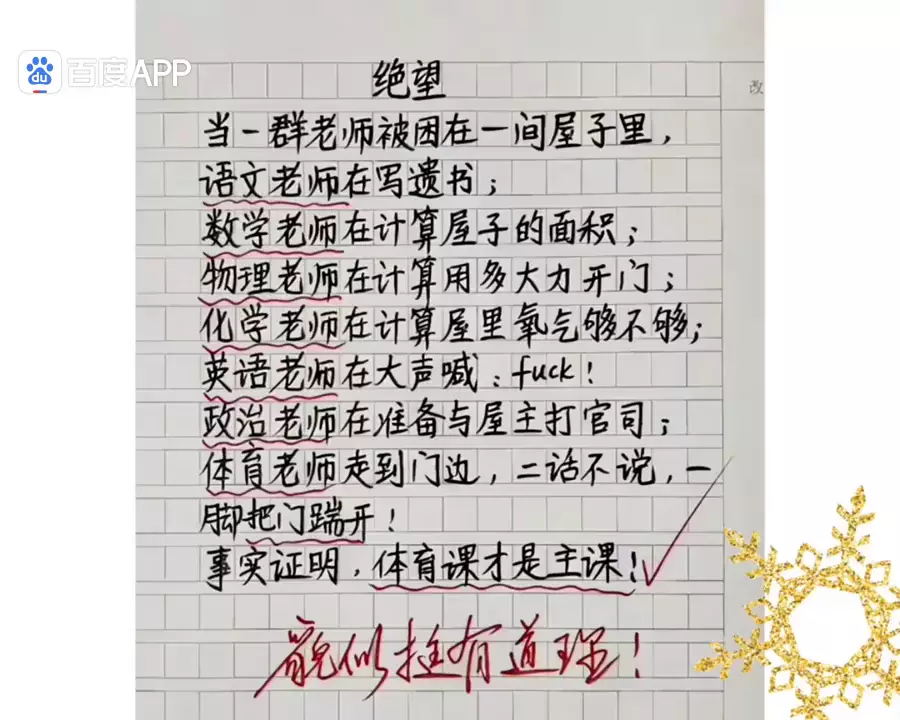 百度APP
改
绝望
当一群老师被困在一间屋子里，
语文老师在写遗书；
数学老师在计算屋子的面积；
物理老师在计算用多大力开门；
化学老师在计算屋里氧气够不够；
英语老师在大声喊：fuck！
政治老师在准备与屋主打官司；
体育老师走到门边，二话不说，一
脚把门踹开！
事实证明，体育课才是主课！
貌似挺有道理！